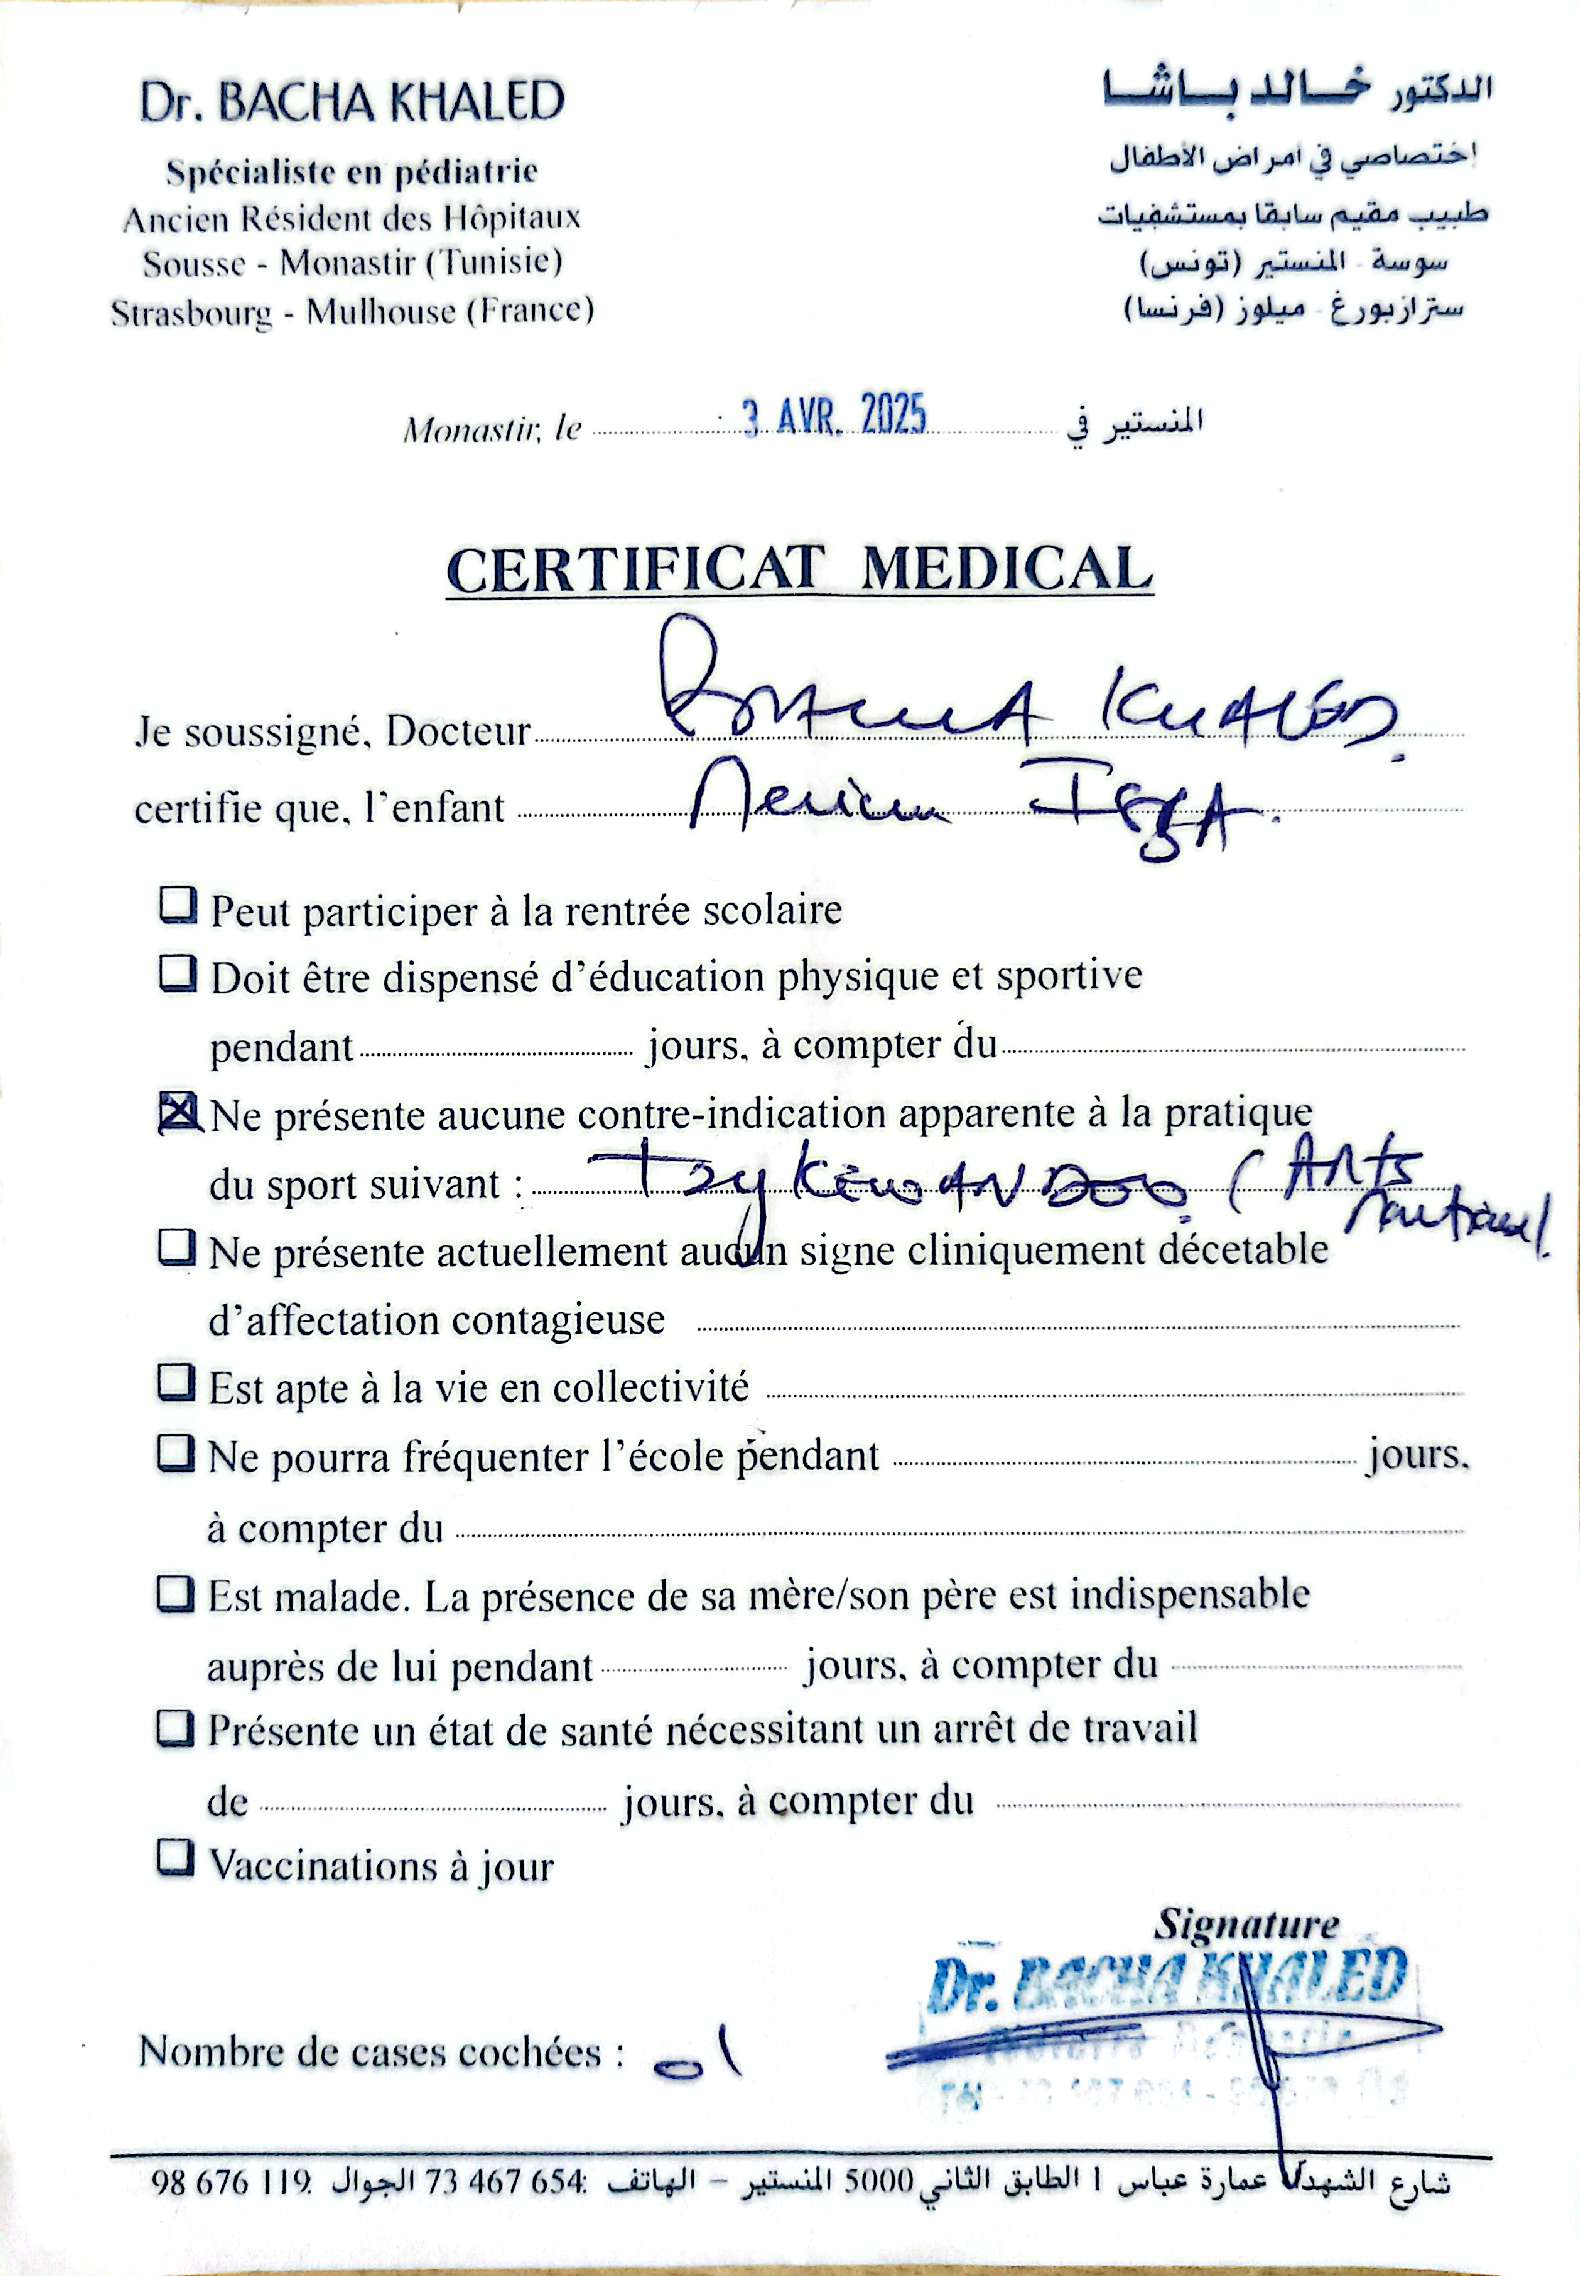 Dr. BACHA KHALED
Spécialiste en pédiatrie
Ancien Résident des Hôpitaux
Sousse - Monastir (Tunisie)
Strasbourg - Mulhouse (France)
الدكتور خالد باشا
إختصاصي في أمراض الأطفال
طبيب مقيم سابقا بمستشفيات
سوسة - المنستير (تونس)
سترازبورغ - ميلوز (فرنسا)
Monastir, le 3 AVR. 2025 المنستير في
CERTIFICAT MEDICAL
Je soussigné, Docteur BACHA KHALED.
certifie que, l'enfant
Peut participer à la rentrée scolaire
Doit être dispensé d'éducation physique et sportive
pendant jours, à compter du
Ne présente aucune contre-indication apparente à la pratique
du sport suivant : (Arts
martiaux).
Ne présente actuellement aucun signe cliniquement décetable
d'affectation contagieuse
Est apte à la vie en collectivité
Ne pourra fréquenter l'école pendant jours,
à compter du
Est malade. La présence de sa mère/son père est indispensable
auprès de lui pendant jours, à compter du
Présente un état de santé nécessitant un arrêt de travail
de jours, à compter du
Vaccinations à jour
Signature
Dr. BACHA KHALED
Nombre de cases cochées : 01
شارع الشهداء عمارة عباس 1 الطابق الثاني 5000 المنستير – الهاتف : 73 467 654 الجوال : 98 676 119